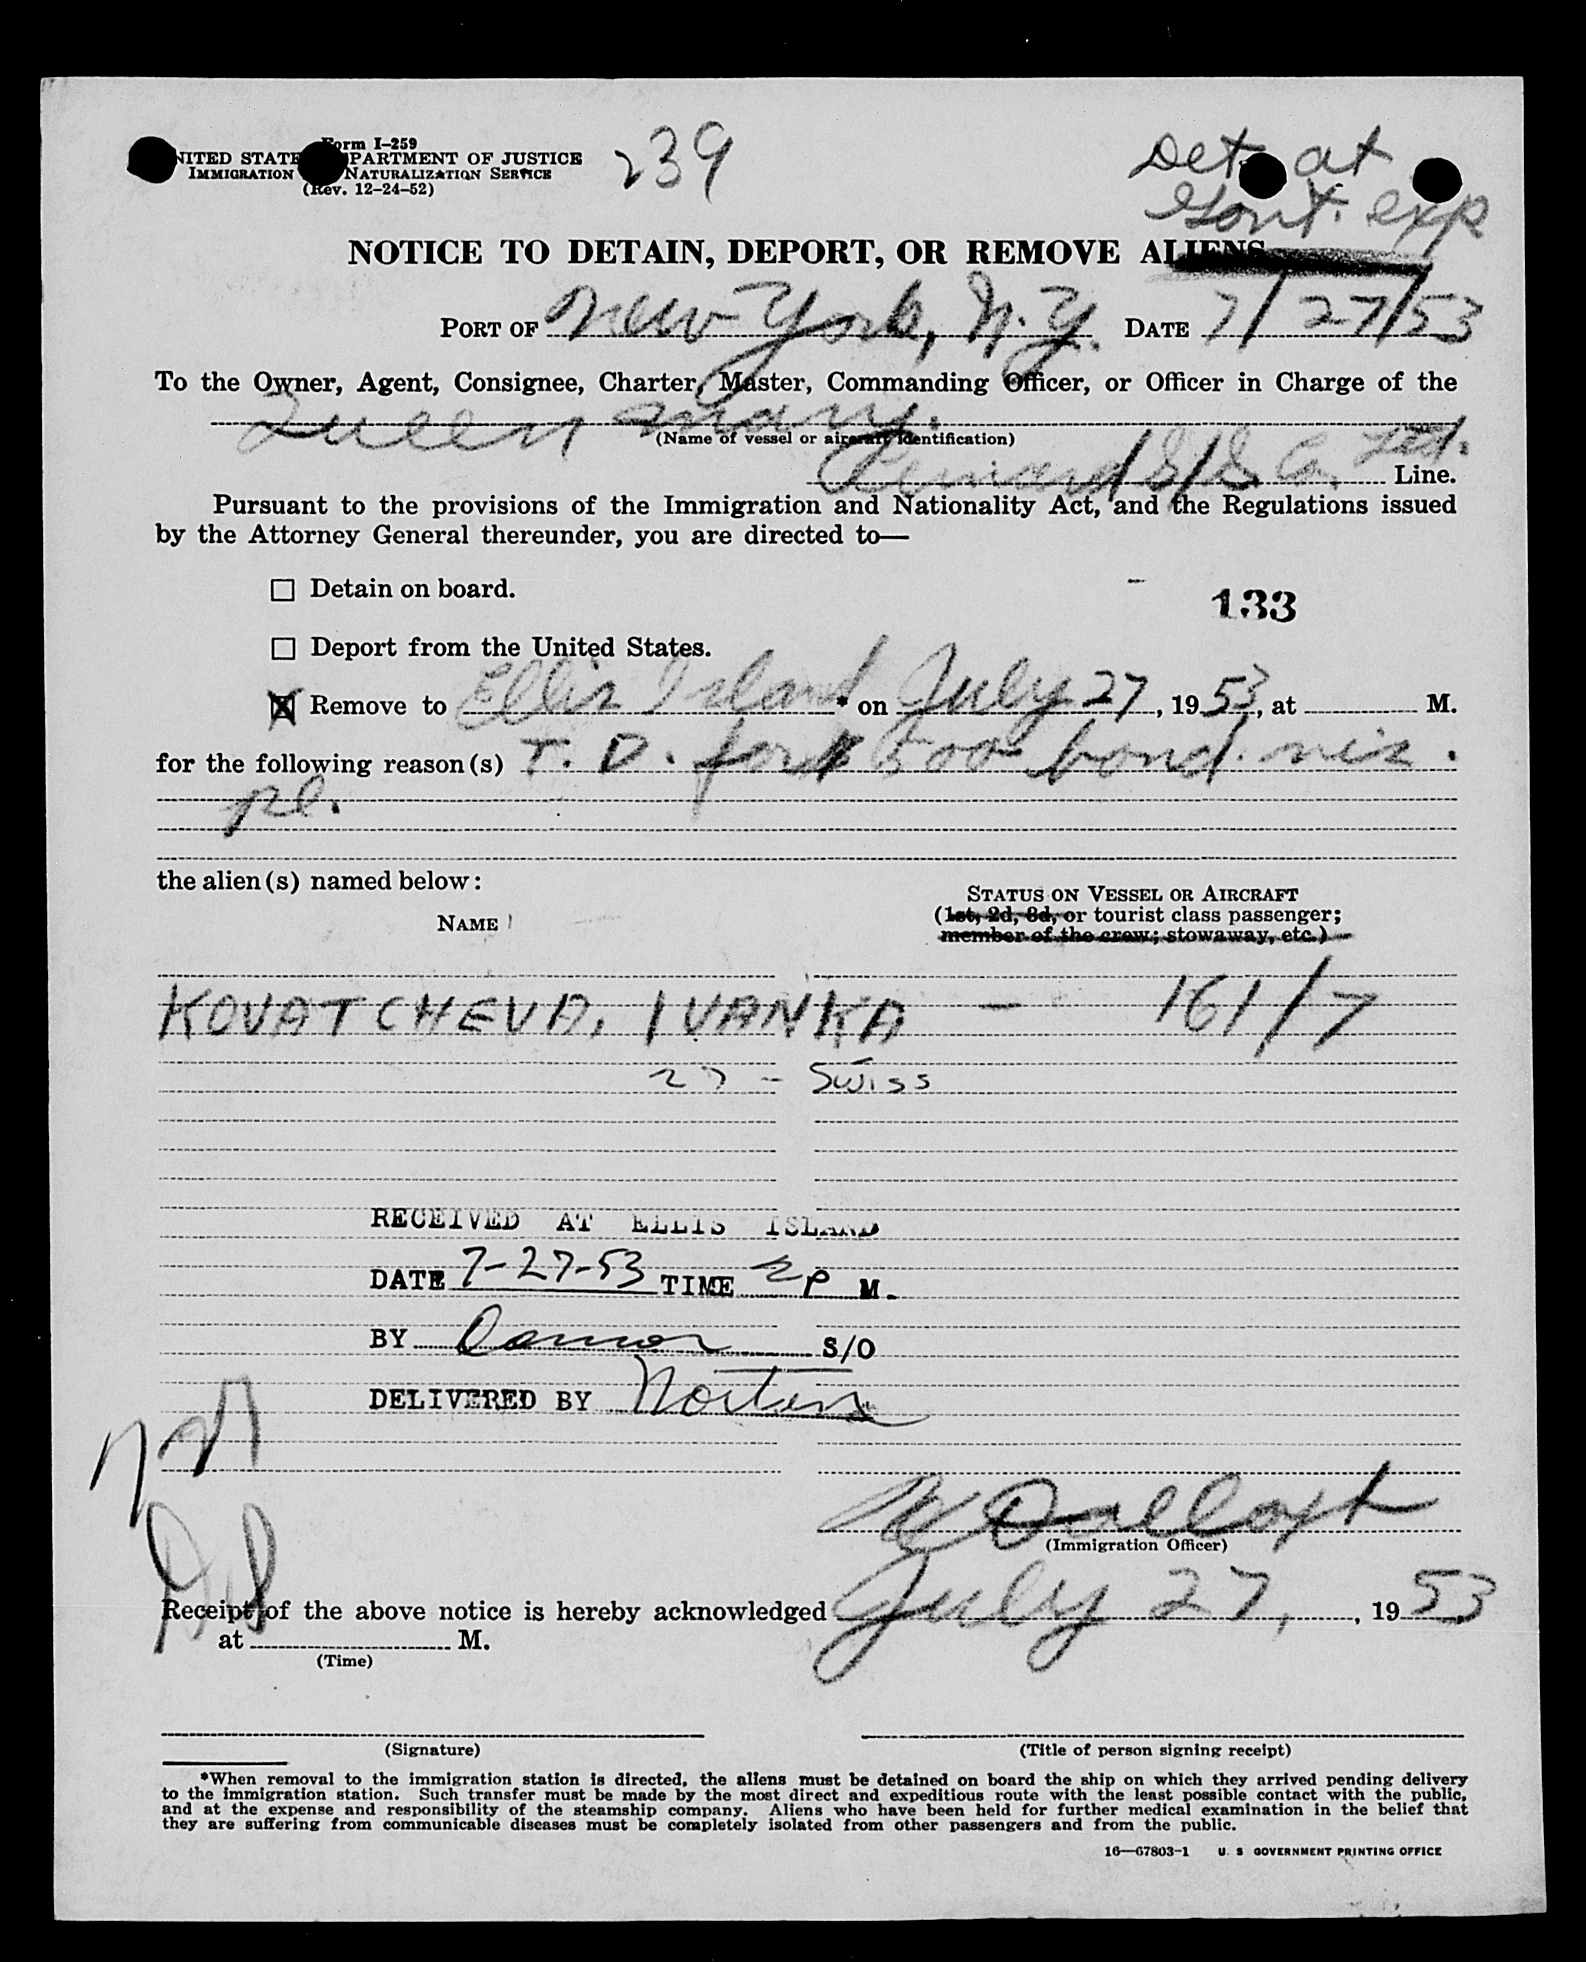 Form I-259
UNITED STATES DEPARTMENT OF JUSTICE
IMMIGRATION NATURALIZATION SERVICE
(Rev. 12-24-52)
239
Det at
Govt. exp
NOTICE TO DETAIN, DEPORT, OR REMOVE ALIENS
PORT OF New York, N.Y. DATE 7/27/53
To the Owner, Agent, Consignee, Charter, Master, Commanding Officer, or Officer in Charge of the
Queen Mary.
(Name of vessel or aircraft identification)
S/S Co. Ltd. Line.
Pursuant to the provisions of the Immigration and Nationality Act, and the Regulations issued
by the Attorney General thereunder, you are directed to—
☐ Detain on board.
133
☐ Deport from the United States.
☒ Remove to Ellis Island * on July 27, 1953, at M.
for the following reason(s) T. D. for $500 bond.
the alien(s) named below:
NAME
STATUS ON VESSEL OR AIRCRAFT
(1st, 2d, 3d, or tourist class passenger;
member of the crew; stowaway, etc.)
KOVATCHEVA, IVANKA — 161/7
27 - Swiss
RECEIVED AT ELLIS ISLAND
DATE 7-27-53 TIME 2P M.
BY S/O
DELIVERED BY Norten
(Immigration Officer)
Receipt of the above notice is hereby acknowledged July 27, 1953
at M.
(Time)
(Signature)
(Title of person signing receipt)
*When removal to the immigration station is directed, the aliens must be detained on board the ship on which they arrived pending delivery
to the immigration station. Such transfer must be made by the most direct and expeditious route with the least possible contact with the public,
and at the expense and responsibility of the steamship company. Aliens who have been held for further medical examination in the belief that
they are suffering from communicable diseases must be completely isolated from other passengers and from the public.
16—67803-1 U. S GOVERNMENT PRINTING OFFICE